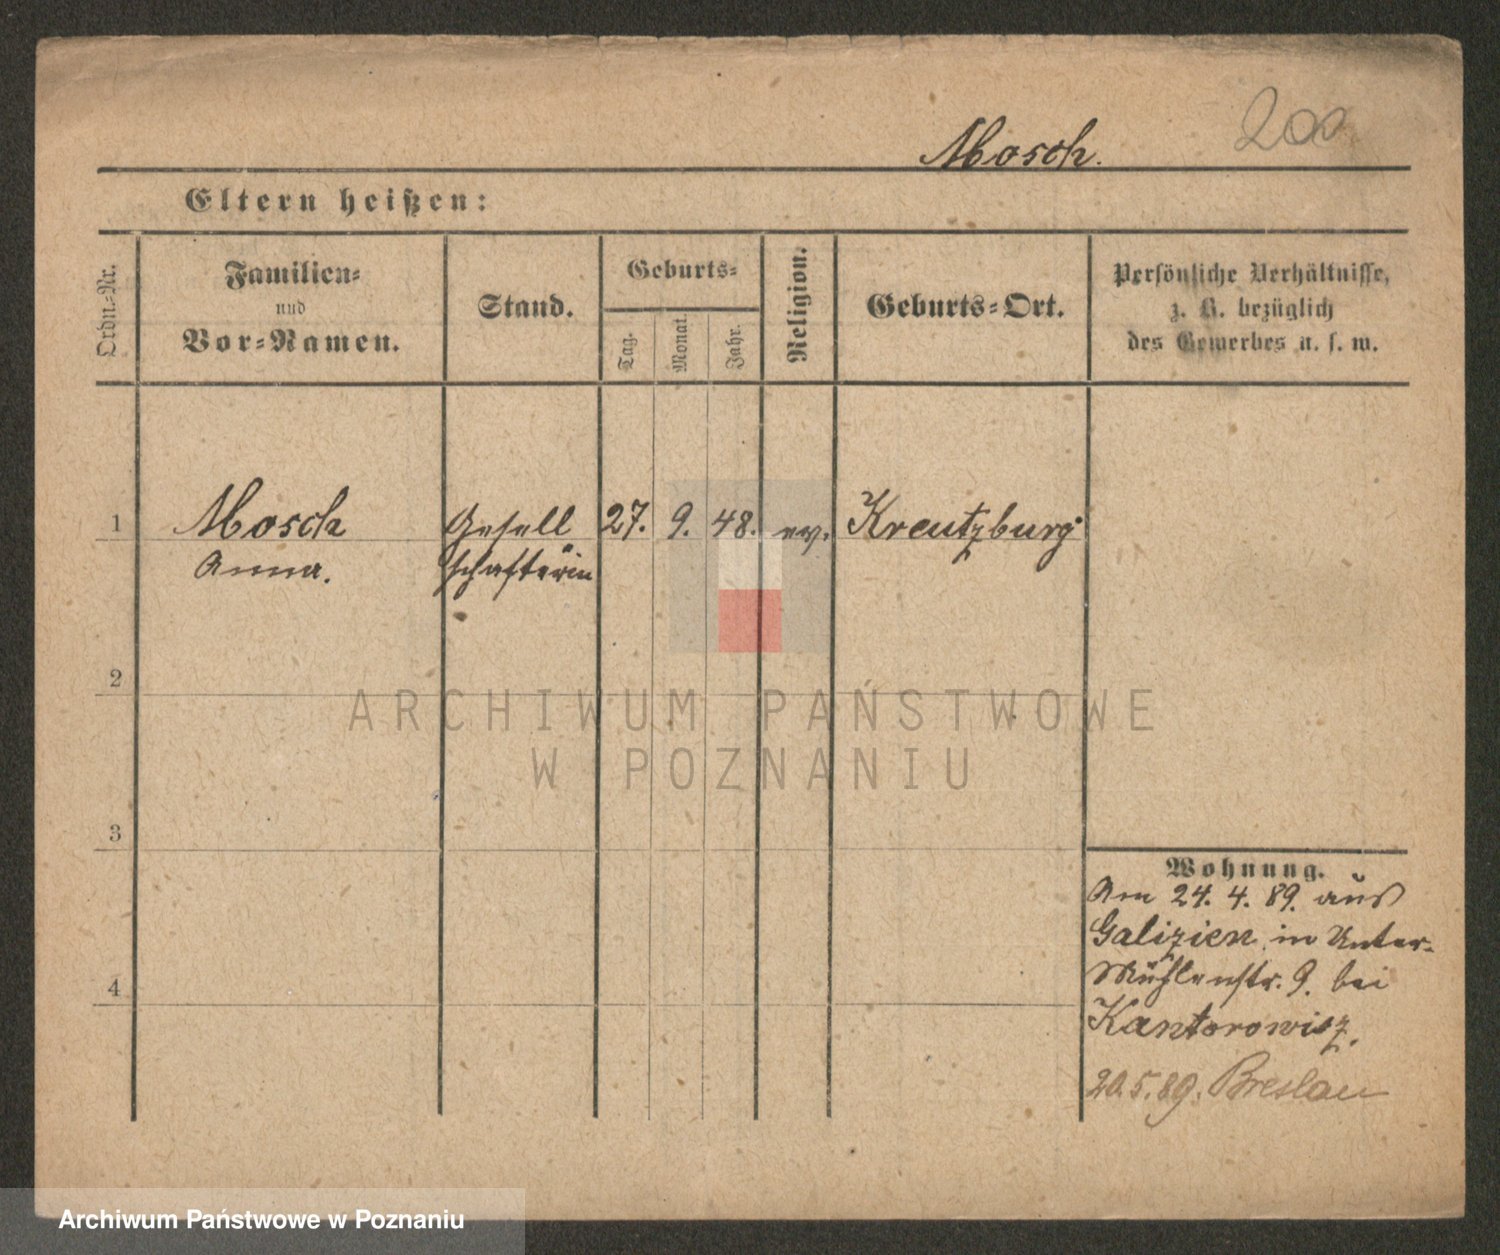 Mosch.
200
Eltern heißen:
Ordn.-Nr.
Familien-
und
Vor-Namen.
Stand.
Geburts-
Tag.
Monat.
Jahr.
Religion.
Geburts-Ort.
Persönliche Verhältnisse,
z. B. bezüglich
des Gewerbes u. s. w.
1 Mosch Gesell 27. 9. 48. ev. Kreutzburg
Anna. schafterin
2
ARCHIWUM PAŃSTWOWE
W POZNANIU
3
Wohnung.
Am 24. 4. 89. aus
Galizien in Unter-
Mühlenstr. 9. bei
4
Kantorowicz.
20.5.89. Breslau
Archiwum Państwowe w Poznaniu